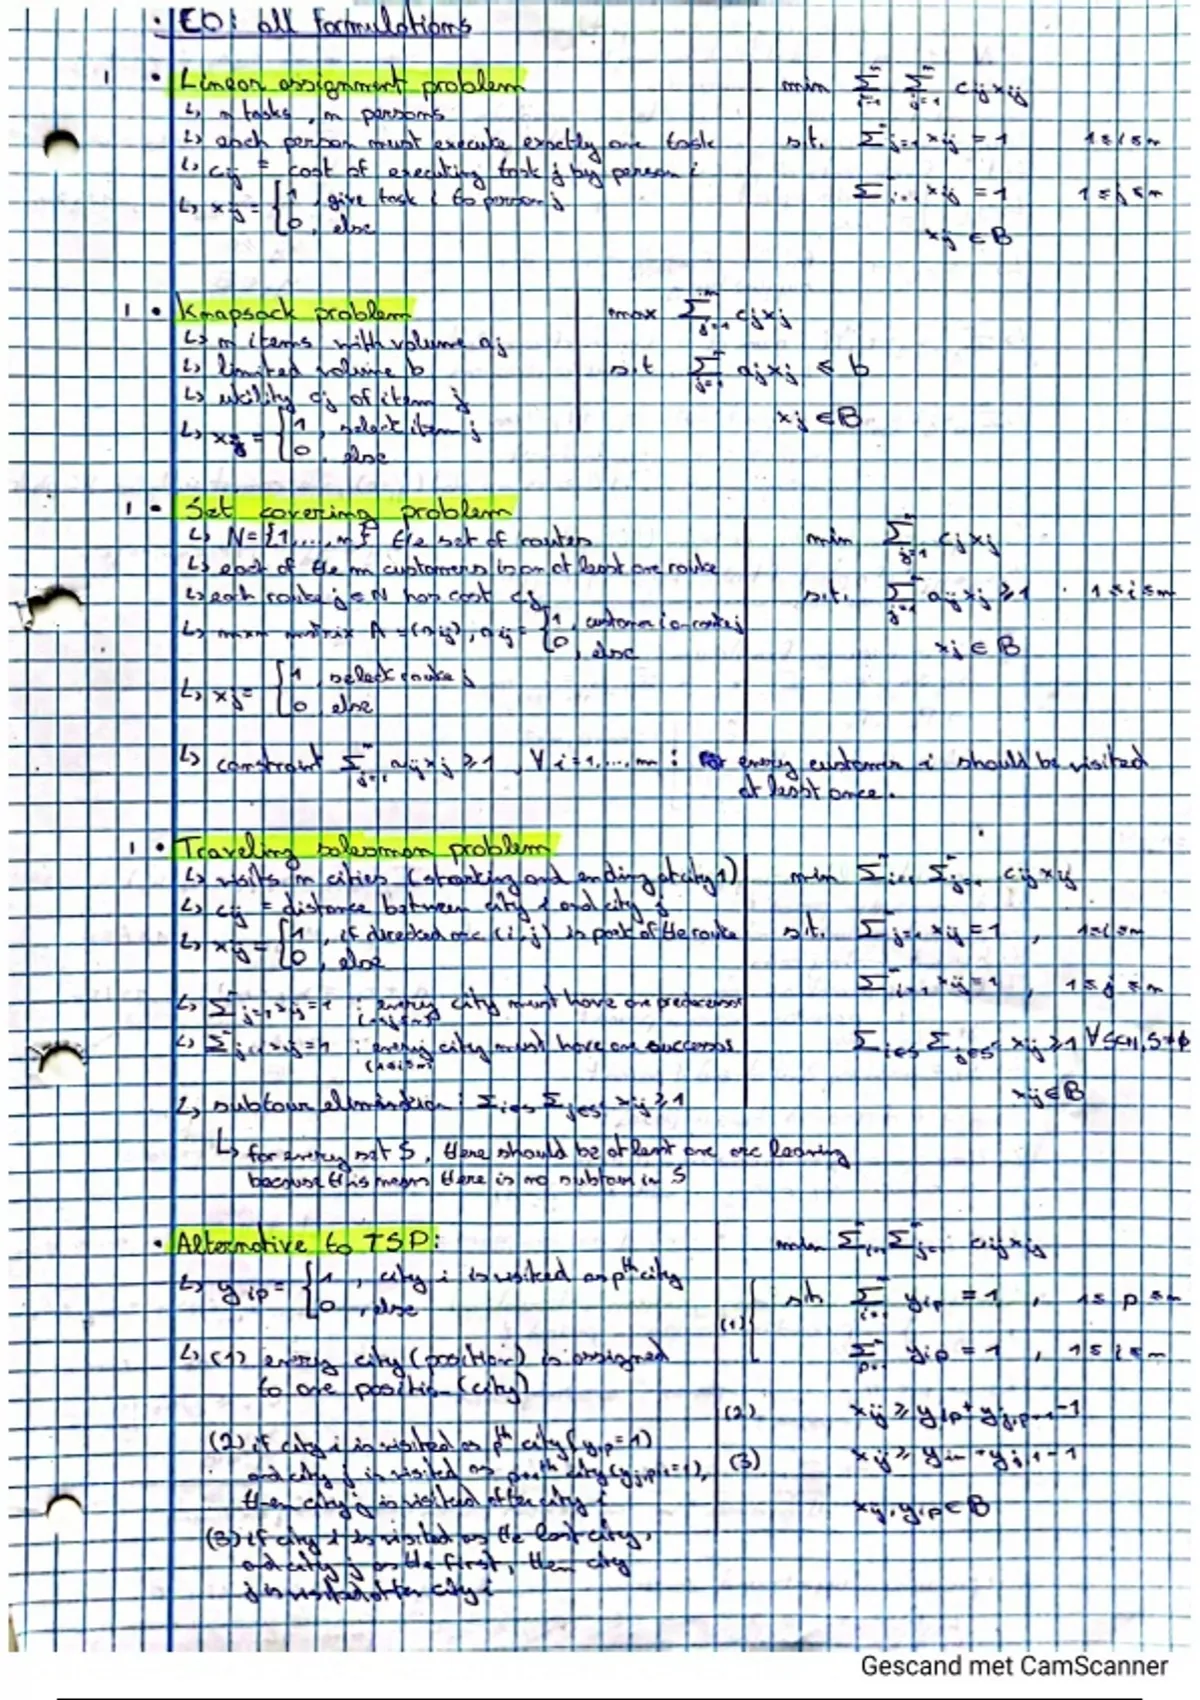 • EO: all formulations
1 • Linear assignment problem
↳ n tasks, n persons
↳ each person must execute exactly one task
↳ cij = cost of executing task j by person i
↳ xij = { 1, give task i to person j
0, else
min Σ_{i=1}^n Σ_{j=1}^n cij xij
s.t. Σ_{j=1}^n xij = 1 1≤i≤n
Σ_{i=1}^n xij = 1 1≤j≤n
xij ∈ B
1 • Knapsack problem
↳ n items with volume aj
↳ limited volume b
↳ utility cj of item j
↳ xj = { 1, select item j
0, else
max Σ_{j=1}^n cj xj
s.t Σ_{j=1}^n aj xj ≤ b
xj ∈ B
1 • Set covering problem
↳ N = {1,...,n} the set of routes
↳ each of the m customers is on at least one route
↳ each route j ∈ N has cost cj
↳ mxn matrix A = (aij), aij = { 1, customer i o route j
0, else
↳ xj = { 1, select route j
0, else
min Σ_{j=1}^n cj xj
s.t. Σ_{j=1}^n aij xj ≥ 1 1≤i≤m
xj ∈ B
↳ constraint Σ_{j=1}^n aij xj ≥ 1, ∀ i=1,...,m : every customer i should be visited
at least once.
1 • Traveling salesman problem
↳ visits n cities (starting and ending at city 1)
↳ cij = distance between city i and city j
↳ xij = { 1, if directed arc (i,j) is part of the route
0, else
↳ xij = 1 : every city must have one predecessor
(1≤j≤n)
↳ xij = 1 : every city must have one successor
(1≤i≤n)
↳ subtour elimination: Σ_{i∈S} Σ_{j∉S} xij ≥ 1
↳ for every set S, there should be at least one arc leaving
because this means there is no subtour in S
min Σ_{i=1}^n Σ_{j=1}^n cij xij
s.t. Σ_{j=1}^n xij = 1, 1≤i≤n
Σ_{i=1}^n xij = 1, 1≤j≤n
xij ≥ 1 ∀S⊂N, S≠∅
xij ∈ B
• Alternative to TSP:
↳ yip = { 1, city i is visited as pth city
0, else
↳ (1) every city (position) is assigned
to one position (city)
(2) if city i is visited as pth city (yip=1)
and city j is visited as p+1th city (yj,p+1=1),
then city j is visited after city i
(3) if city i is visited as the last city,
and city j as the first, then city
j is visited after city i
min Σ_{i=1}^n Σ_{j=1}^n cij xij
(1) { s.t. Σ_{i=1}^n yip = 1, 1≤p≤n
Σ_{p=1}^n yip = 1, 1≤i≤n
(2) xij ≥ yip + yj,p+1 - 1
(3) xij ≥ yin + yj,1 - 1
xij, yip ∈ B
Gescand met CamScanner